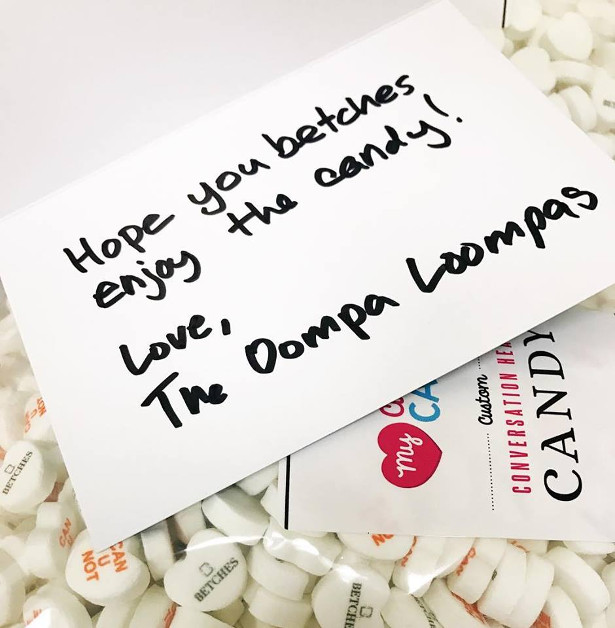 Hope you betches
enjoy the candy!
Love,
The Oompa Loompas
my
CA
Custom
CONVERSATION HEA
CANDY
BETCHES
CAN
U
NOT
CAN
U
BETCHES
BETCHES